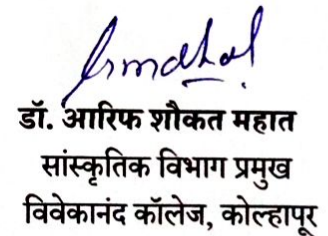 डॉ. आरिफ शौकत महात
सांस्कृतिक विभाग प्रमुख
विवेकानंद कॉलेज, कोल्हापूर